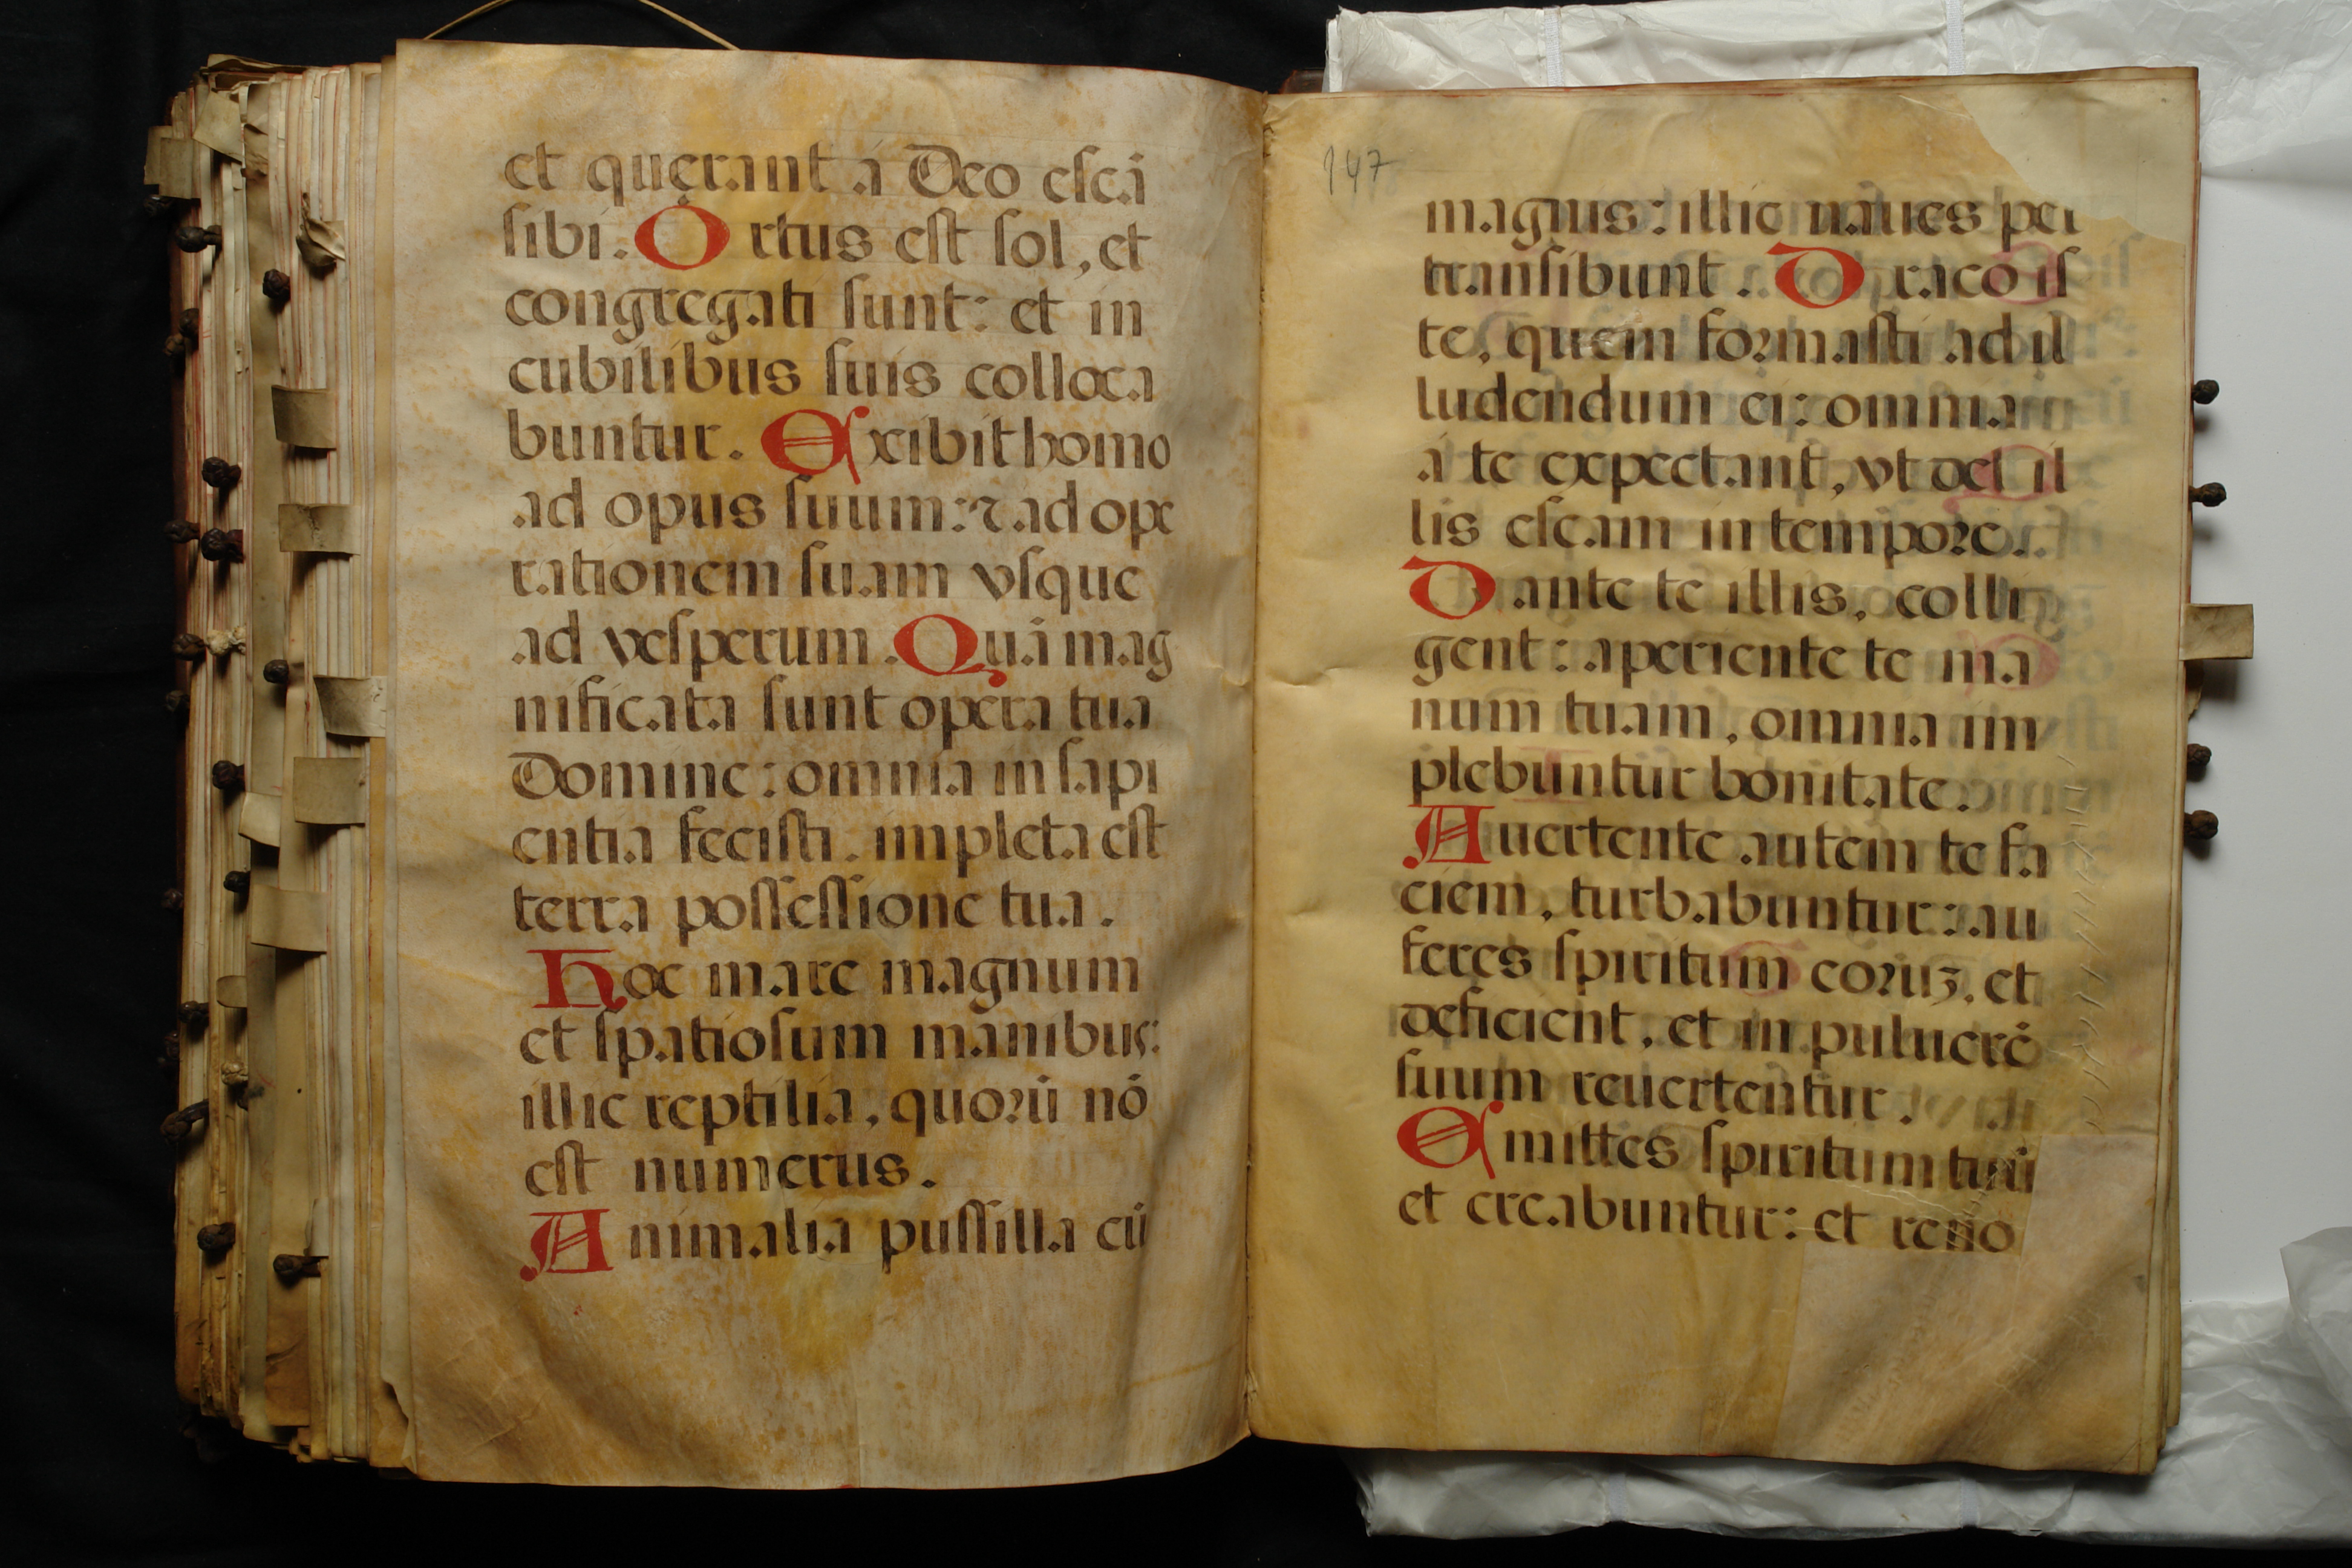 et quęrant á Deo escā
sibi. Ortus est sol, et
congregati sunt: et in
cubilibus suis colloca
buntur. Exibit homo
ad opus suum: ⁊ ad ope
rationem suam vsque
ad vesperum. Quā mag
nificata sunt opera tua
Domine: omnia in sapi
entia fecisti. impleta est
terra possessione tua.
Hoc mare magnum
et spatiosum manibus:
illic reptilia, quorū nō
est numerus.
Animalia pussilla cū
147
magnis: illic naues per
transibunt. Draco is
te, quem formasti ad il
ludendum ei: omnia
á te expectant, vt des il
lis escam in tempore.
Dante te illis, colli
gent: aperiente te ma
num tuam, omnia im
plebuntur bonitate.
Auertente autem te fa
ciem, turbabuntur: au
feres spiritum eoruꝫ, et
deficient, et in puluerē
suum reuertentur.
Emittes spiritum tuū
et creabuntur: et reno